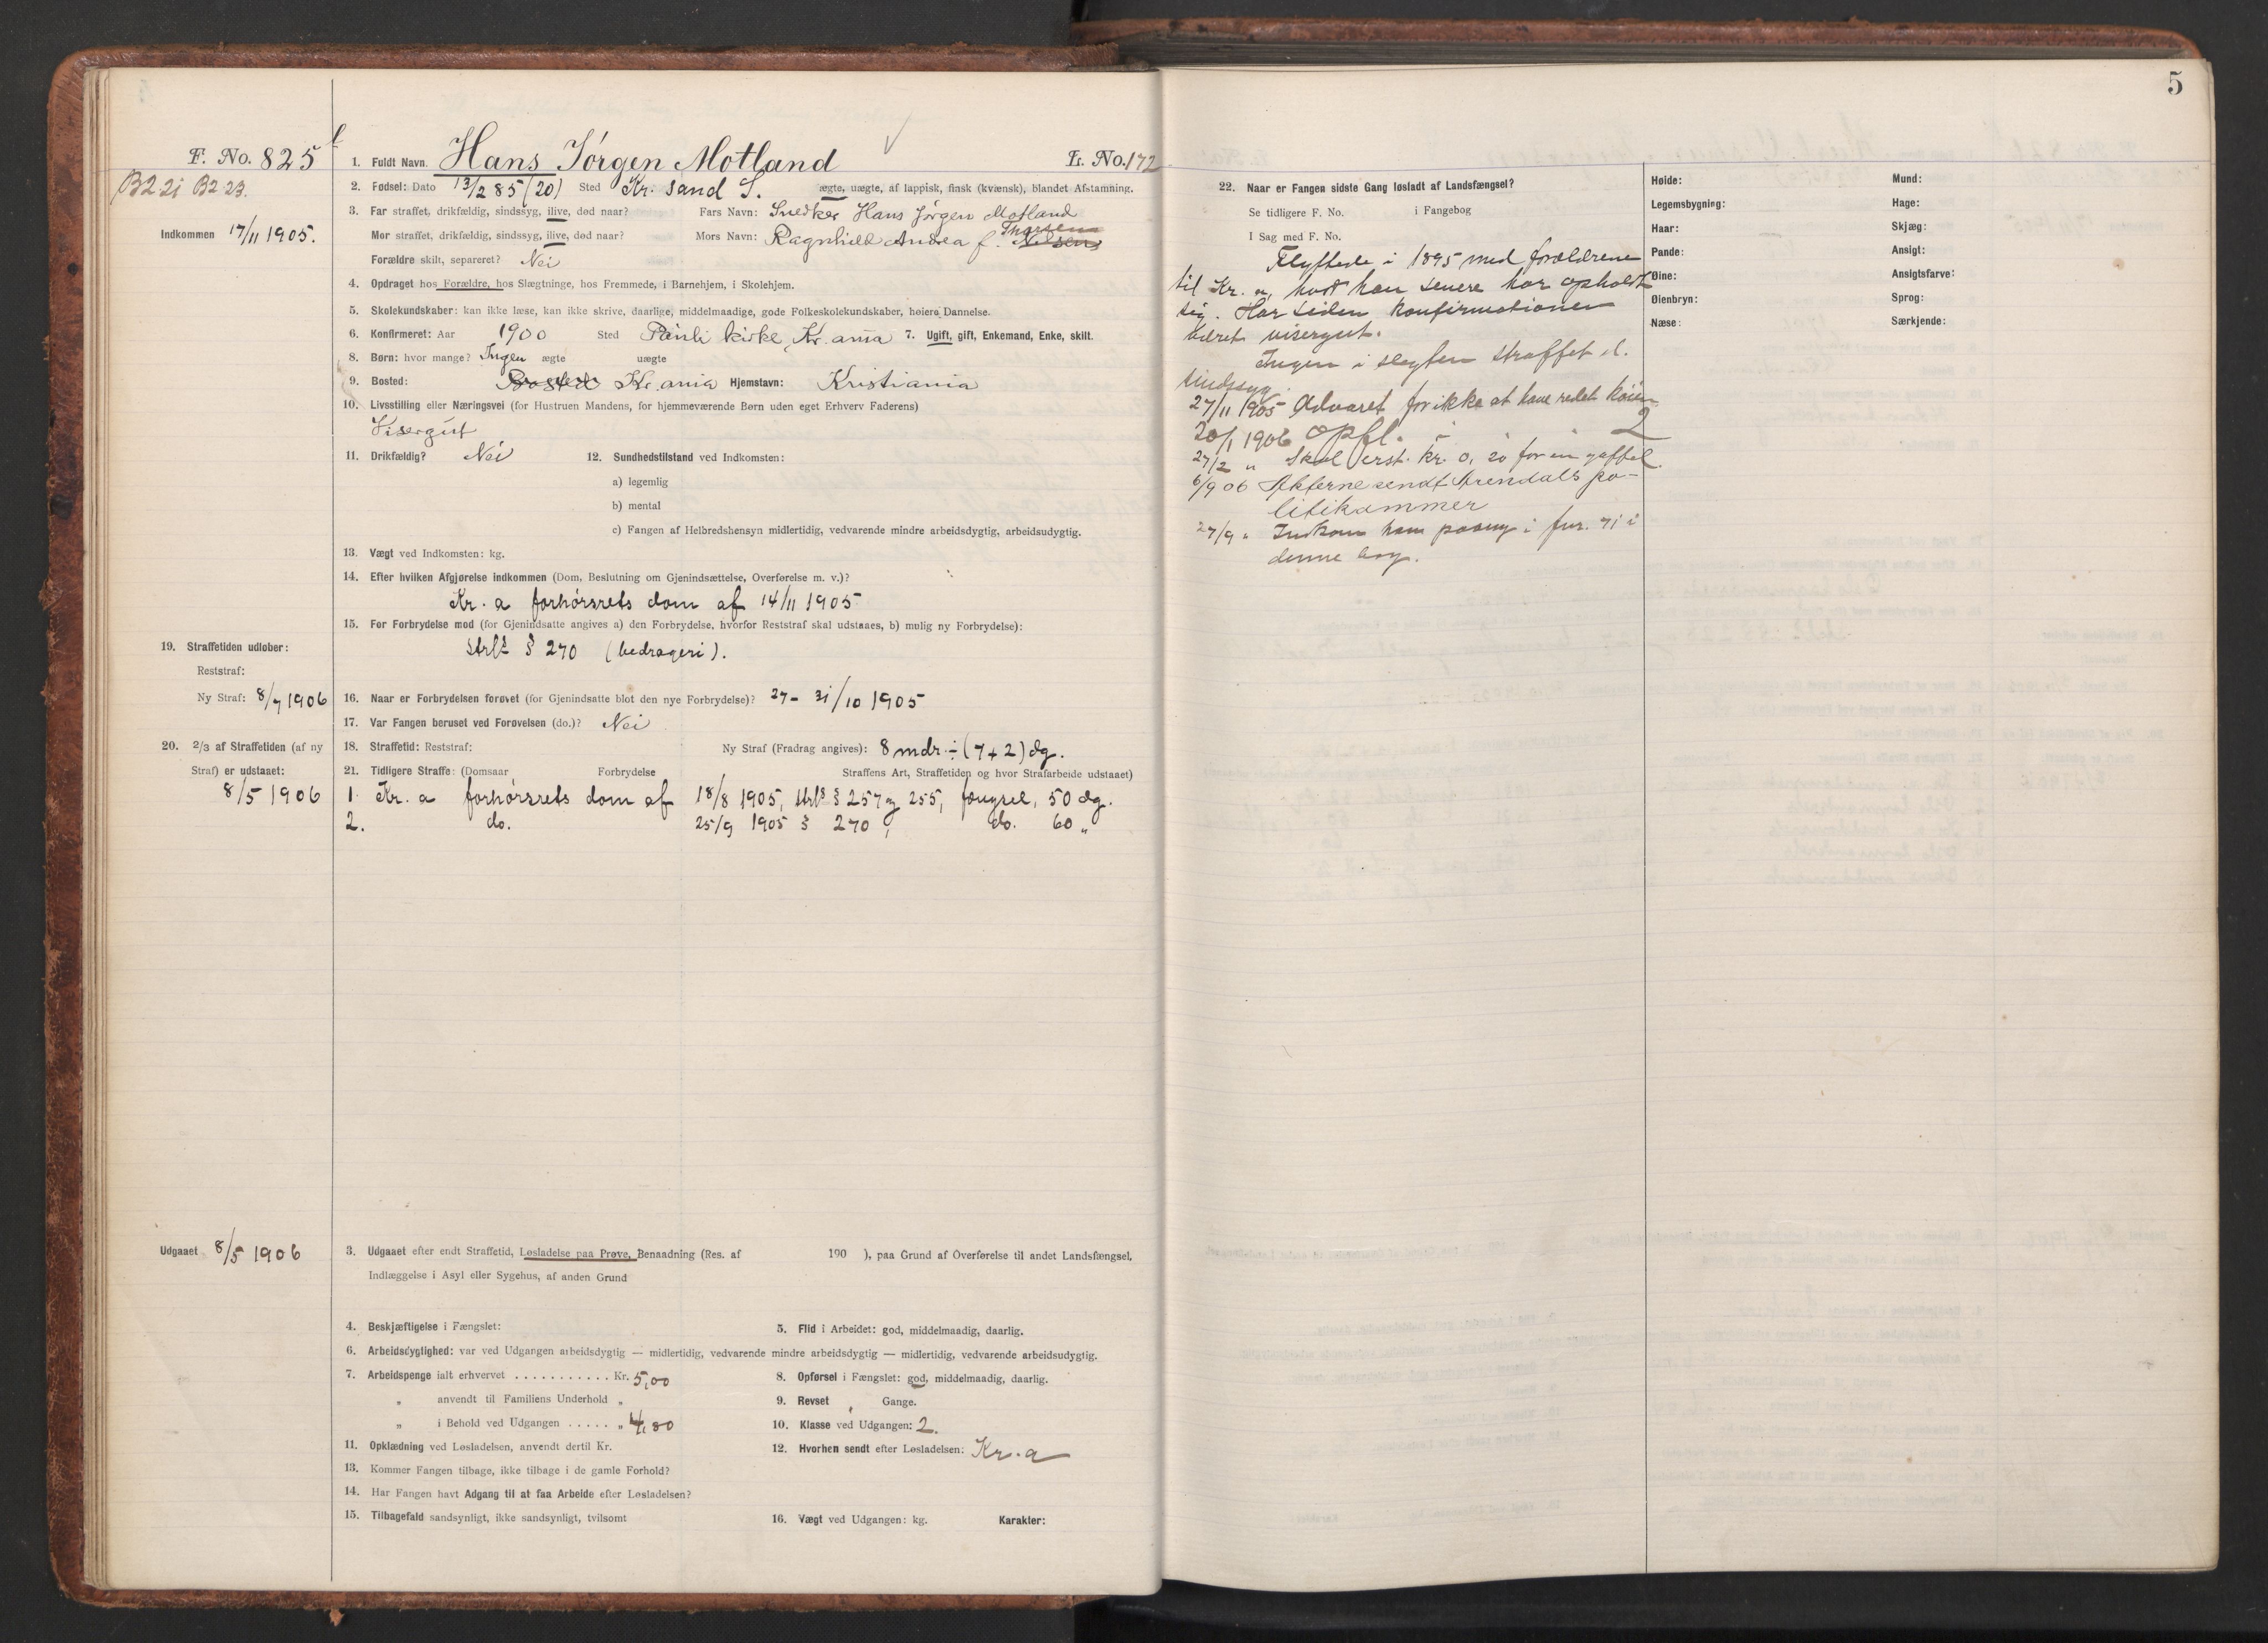 5
F. No. 825
1. Fuldt Navn. Hans Jörgen Motland
L. No. 172
B2 21 B2 23.
2. Fødsel: Dato 13/2 85 (20) Sted Kr. sand S. ægte, uægte, af lappisk, finsk (kvænsk), blandet Afstamning.
3. Far straffet, drikfældig, sindssyg, ilive, død naar? Fars Navn: Snedker Hans Jörgen Motland
Indkommen 17/11 1905.
Mor straffet, drikfældig, sindssyg, ilive, død naar? Mors Navn: Ragnhild Andrea f. Nilsen Thorsen
Forældre skilt, separeret? Nei
4. Opdraget hos Forældre, hos Slægtninge, hos Fremmede, i Barnehjem, i Skolehjem.
5. Skolekundskaber: kan ikke læse, kan ikke skrive, daarlige, middelmaadige, gode Folkeskolekundskaber, høiere Dannelse.
6. Konfirmeret: Aar 1900 Sted Pauli kirke, Kr.ania 7. Ugift, gift, Enkemand, Enke, skilt.
8. Børn: hvor mange? Ingen ægte uægte
9. Bosted: Kr.ania Hjemstavn: Kristiania
10. Livsstilling eller Næringsvei (for Hustruen Mandens, for hjemmeværende Børn uden eget Erhverv Faderens)
Visergut
11. Drikfældig? Nei 12. Sundhedstilstand ved Indkomsten:
a) legemlig
b) mental
c) Fangen af Helbredshensyn midlertidig, vedvarende mindre arbeidsdygtig, arbeidsudygtig.
13. Vægt ved Indkomsten: kg.
14. Efter hvilken Afgjørelse indkommen (Dom, Beslutning om Gjenindsættelse, Overførelse m. v.)?
Kr. a forhörsrets dom af 14/11 1905
15. For Forbrydelse mod (for Gjenindsatte angives a) den Forbrydelse, hvorfor Reststraf skal udstaaes, b) mulig ny Forbrydelse):
Strl § 270 (bedrageri).
19. Straffetiden udløber:
Reststraf:
Ny Straf: 8/7 1906
16. Naar er Forbrydelsen forøvet (for Gjenindsatte blot den nye Forbrydelse)? 27 - 31/10 1905
17. Var Fangen beruset ved Forøvelsen (do.)? Nei
20. 2/3 af Straffetiden (af ny
Straf) er udstaaet:
8/5 1906
18. Straffetid: Reststraf: Ny Straf (Fradrag angives): 8 mdr ÷ (7+2) dg.
21. Tidligere Straffe: (Domsaar Forbrydelse Straffens Art, Straffetiden og hvor Strafarbeide udstaaet)
1. Kr. a forhörsrets dom af 18/8 1905, strl § 257 og 255, fængsel, 50 dg.
2. do. 25/9 1905 § 270, do. 60 „
Udgaaet 8/5 1906
3. Udgaaet efter endt Straffetid, Løsladelse paa Prøve, Benaadning (Res. af 190 ), paa Grund af Overførelse til andet Landsfængsel,
Indlæggelse i Asyl eller Sygehus, af anden Grund
4. Beskjæftigelse i Fængslet: 5. Flid i Arbeidet: god, middelmaadig, daarlig.
6. Arbeidsdygtighed: var ved Udgangen arbeidsdygtig — midlertidig, vedvarende mindre arbeidsdygtig — midlertidig, vedvarende arbeidsudygtig.
7. Arbeidspenge ialt erhvervet . . . . . . . . . . . Kr. 5,00 8. Opførsel i Fængslet: god, middelmaadig, daarlig.
„ anvendt til Familiens Underhold „ 9. Revset , Gange.
„ i Behold ved Udgangen . . . . . „ 4,80 10. Klasse ved Udgangen: 2.
11. Opklædning ved Løsladelsen, anvendt dertil Kr. 12. Hvorhen sendt efter Løsladelsen: Kr. a
13. Kommer Fangen tilbage, ikke tilbage i de gamle Forhold?
14. Har Fangen havt Adgang til at faa Arbeide efter Løsladelsen?
15. Tilbagefald sandsynligt, ikke sandsynligt, tvilsomt 16. Vægt ved Udgangen: kg. Karakter:
22. Naar er Fangen sidste Gang løsladt af Landsfængsel?
Se tidligere F. No. i Fangebog
I Sag med F. No.
Flyttede i 1895 med forældrene
til Kr. a, hvor han senere har opholdt
sig. Har siden konfirmationen
været visergut.
Ingen i slegten straffet el.
sindssyg.
27/11 1905 Advaret for ikke at have redet köien
20/1 1906 opfl. i 2
27/2 „ Skal erst. kr. 0,20 for en gaffel.
6/9 06 Akterne sendt Arendals po-
litikammer
27/9 „ Indkom ham paany i fnr. 71 i
denne bog.
Høide:
Legemsbygning:
Haar:
Pande:
Øine:
Øienbryn:
Næse:
Mund:
Hage:
Skjæg:
Ansigt:
Ansigtsfarve:
Sprog:
Særkjende: